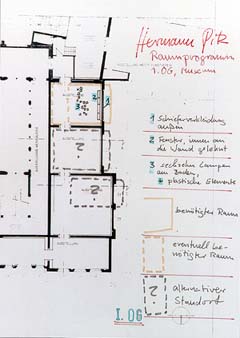 Hermann Pitz
Raumprogramm
1. OG, Museum
1 Schieferverkleidung
außen
2 Fenster, innen an
die Wand gelehnt
3 sechzehn Lampen
am Boden,
plastische Elemente
benötigter Raum
eventuell be-
nötigter Raum
alternativer
Standort
?
?
?
I. OG